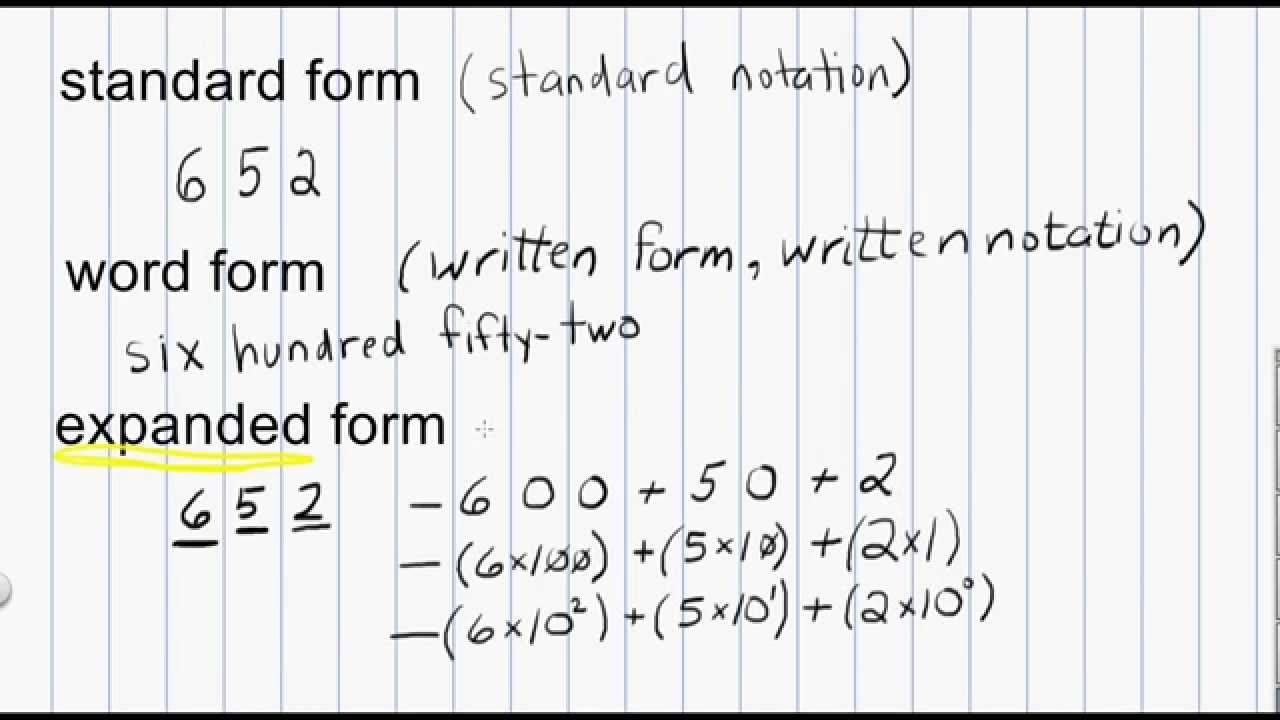 standard form (standard notation)
6 5 2
word form (written form, written notation)
six hundred fifty-two
expanded form
6 5 2 - 600 + 50 + 2
- (6×100) + (5×10) + (2×1)
- (6×10²) + (5×10¹) + (2×10⁰)